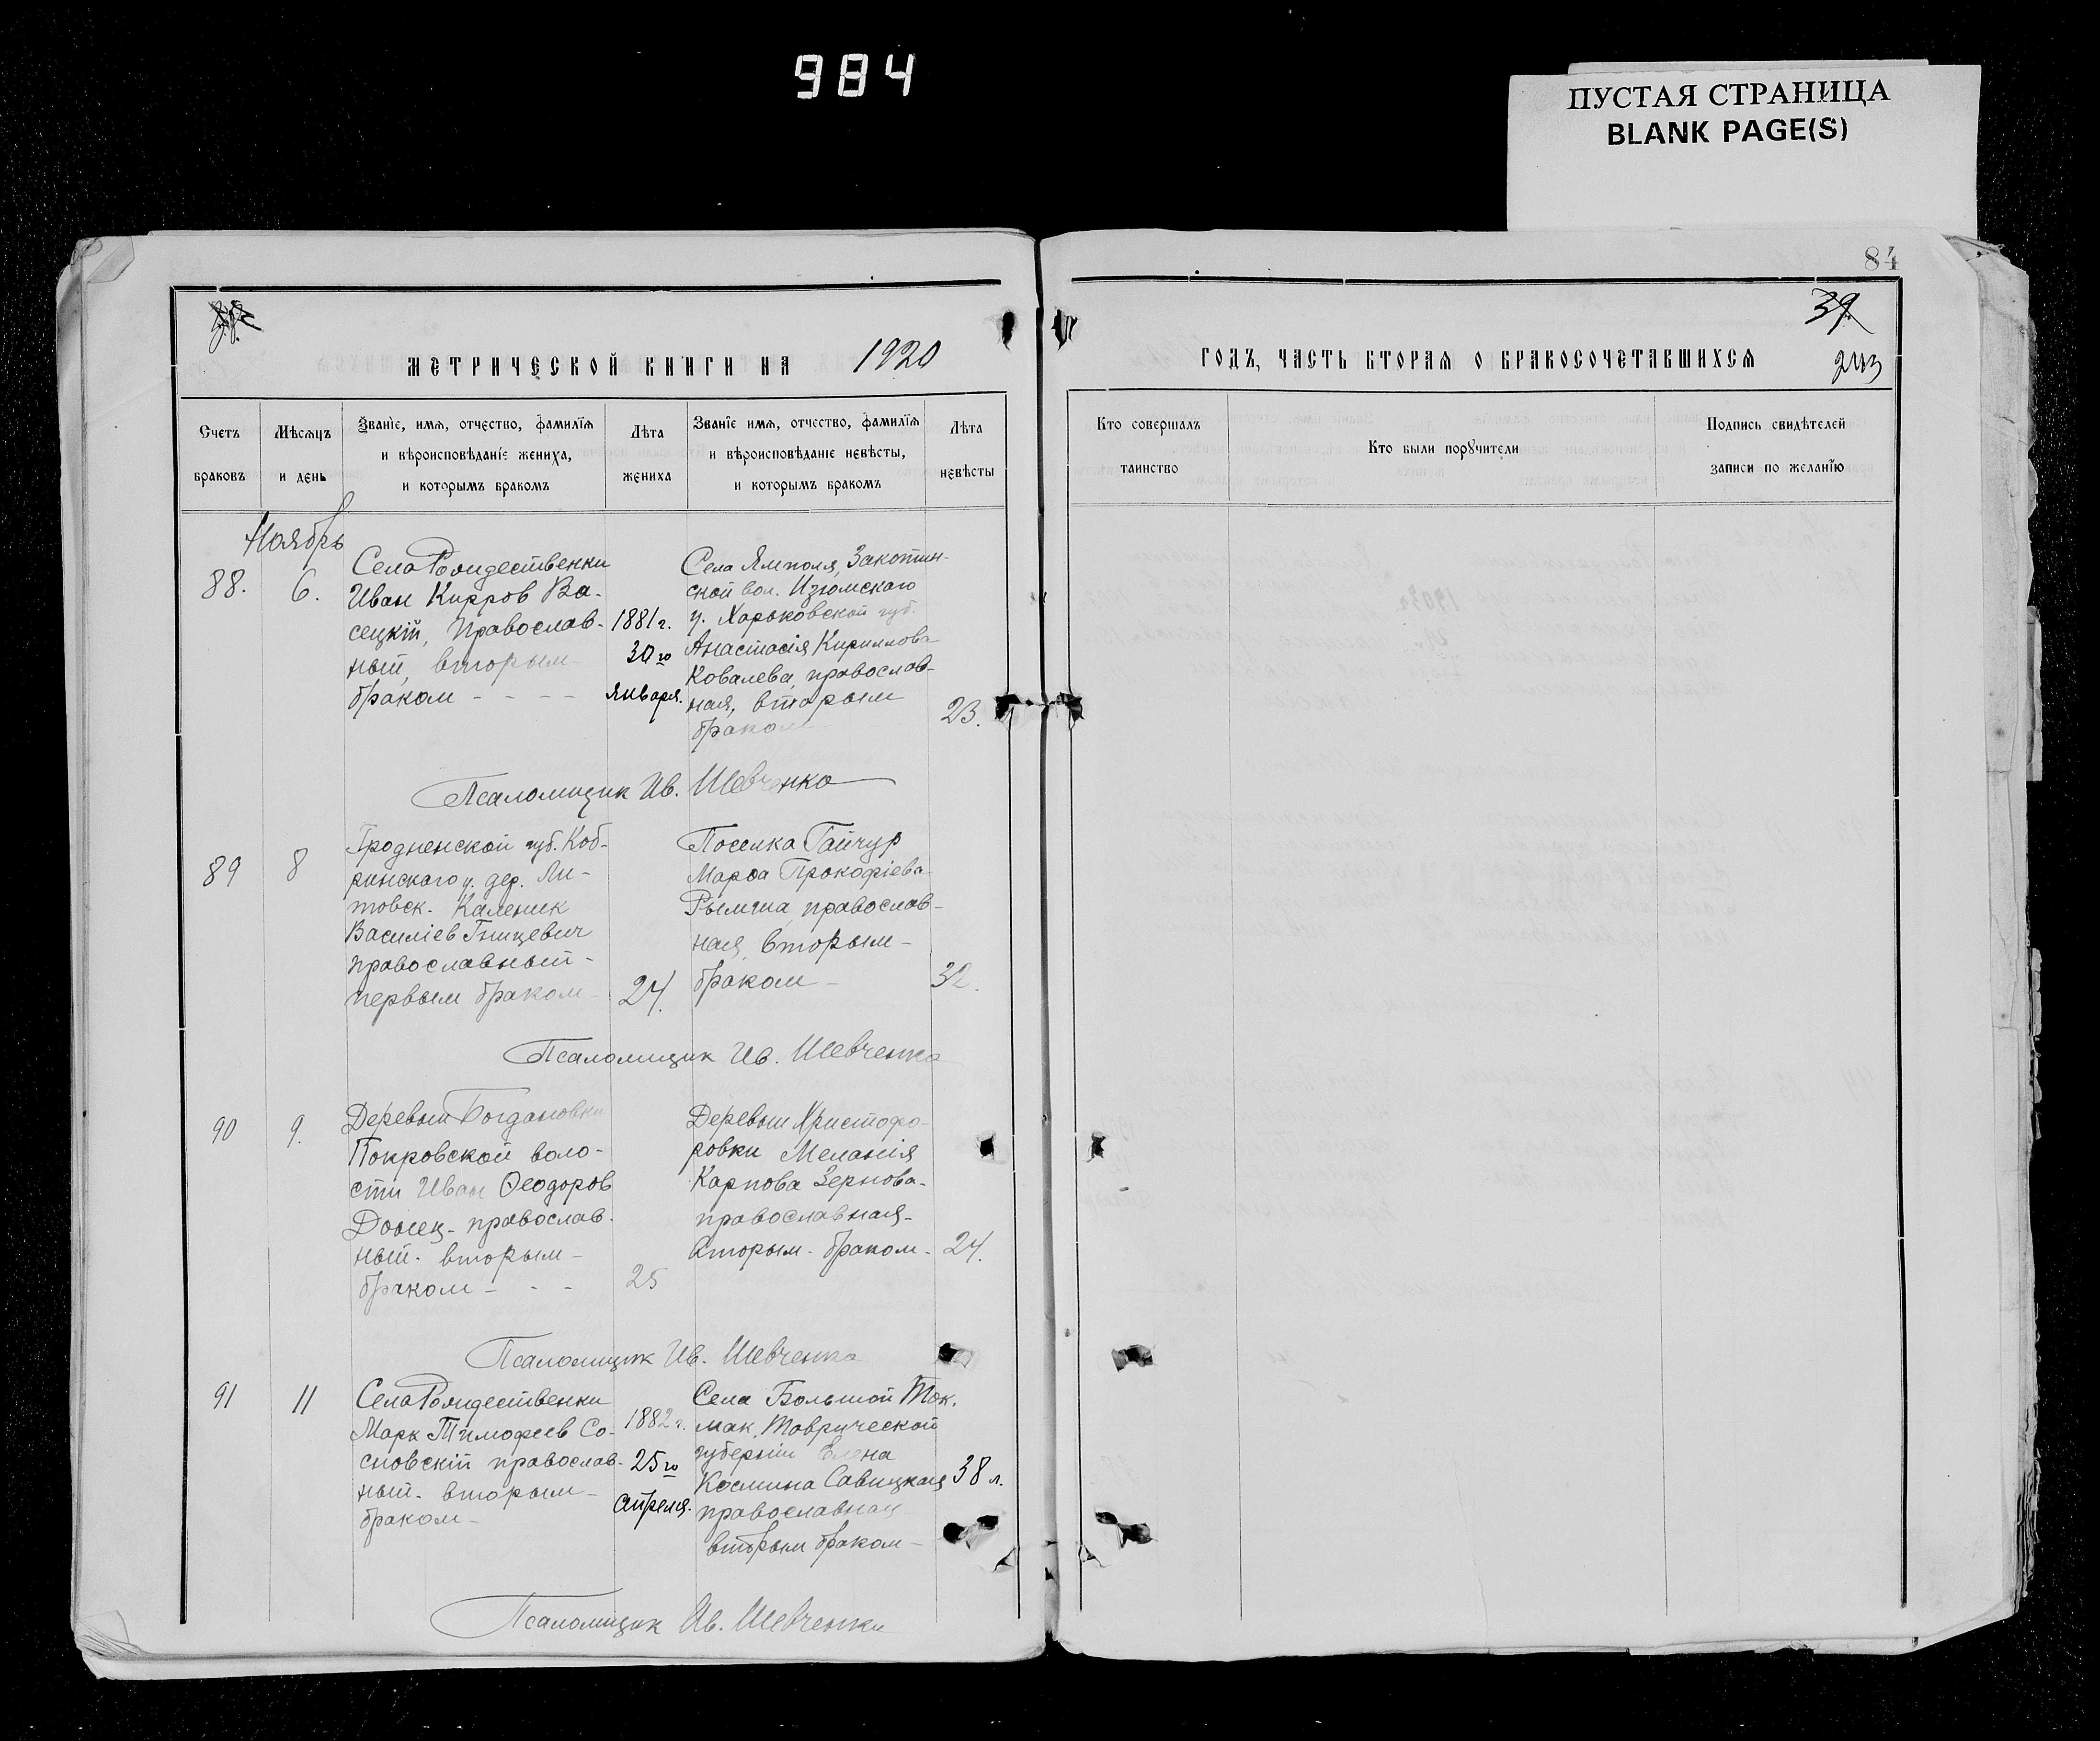 984
ПУСТАЯ СТРАНИЦА
BLANK PAGE(S)
84
39.
243
МЕТРИЧЕСКОЙ КНИГИ НА 1920
ГОДЪ, ЧАСТЬ ВТОРАЯ О БРАКОСОЧЕТАВШИХСЯ
Счетъ браковъ
Мѣсяцъ и день
Званіе, имя, отчество, фамилія
и вѣроисповѣданіе жениха,
и которымъ бракомъ
Лѣта жениха
Званіе имя, отчество, фамилія
и вѣроисповѣданіе невѣсты,
и которымъ бракомъ
Лѣта невѣсты
Кто совершалъ таинство
Кто были поручители
Подпись свидѣтелей
записи по желанію
Ноябрь
88.
6.
Села Рождественки
Иван Кирров Ва-
сецкій, Православ-
ный, вторым
браком - - - -
1881 г.
30го
Января.
Села Ямполя, Закотин-
ской вол. Изюмскаго
у. Харьковской губ.
Анастасія Кириллова
Ковалева, православ-
ная, вторым
браком
23.
Псаломщик Ив. Шевченко
89
8
Гродненской губ. Коб-
ринскаго у. дер. Ли-
товск. Каленик
Василіев Гницевич
православный -
первым браком -
24.
Поселка Гайчур
Марѳа Прокофіева
Рымша, православ-
ная, вторым -
браком -
32.
Псаломщик Ив. Шевченко
90
9.
Деревни Богдановки
Покровской воло-
сти Иван Ѳеодоров
Донец - православ-
ный - вторым -
браком - - -
25
Деревни Христофо-
ровки Меланія
Карпова Зернова -
православная -
вторым - браком -
24.
Псаломщик Ив. Шевченко
91
11
Села Рождественки
Марк Тимофеев Со-
сновскій православ-
ный - вторым -
браком -
1882 г.
25го
Апреля.
Села Большой Ток-
мак, Таврической
губерніи Елена
Космина Савицкая
православная
вторым браком -
38 л.
Псаломщик Ив. Шевченко